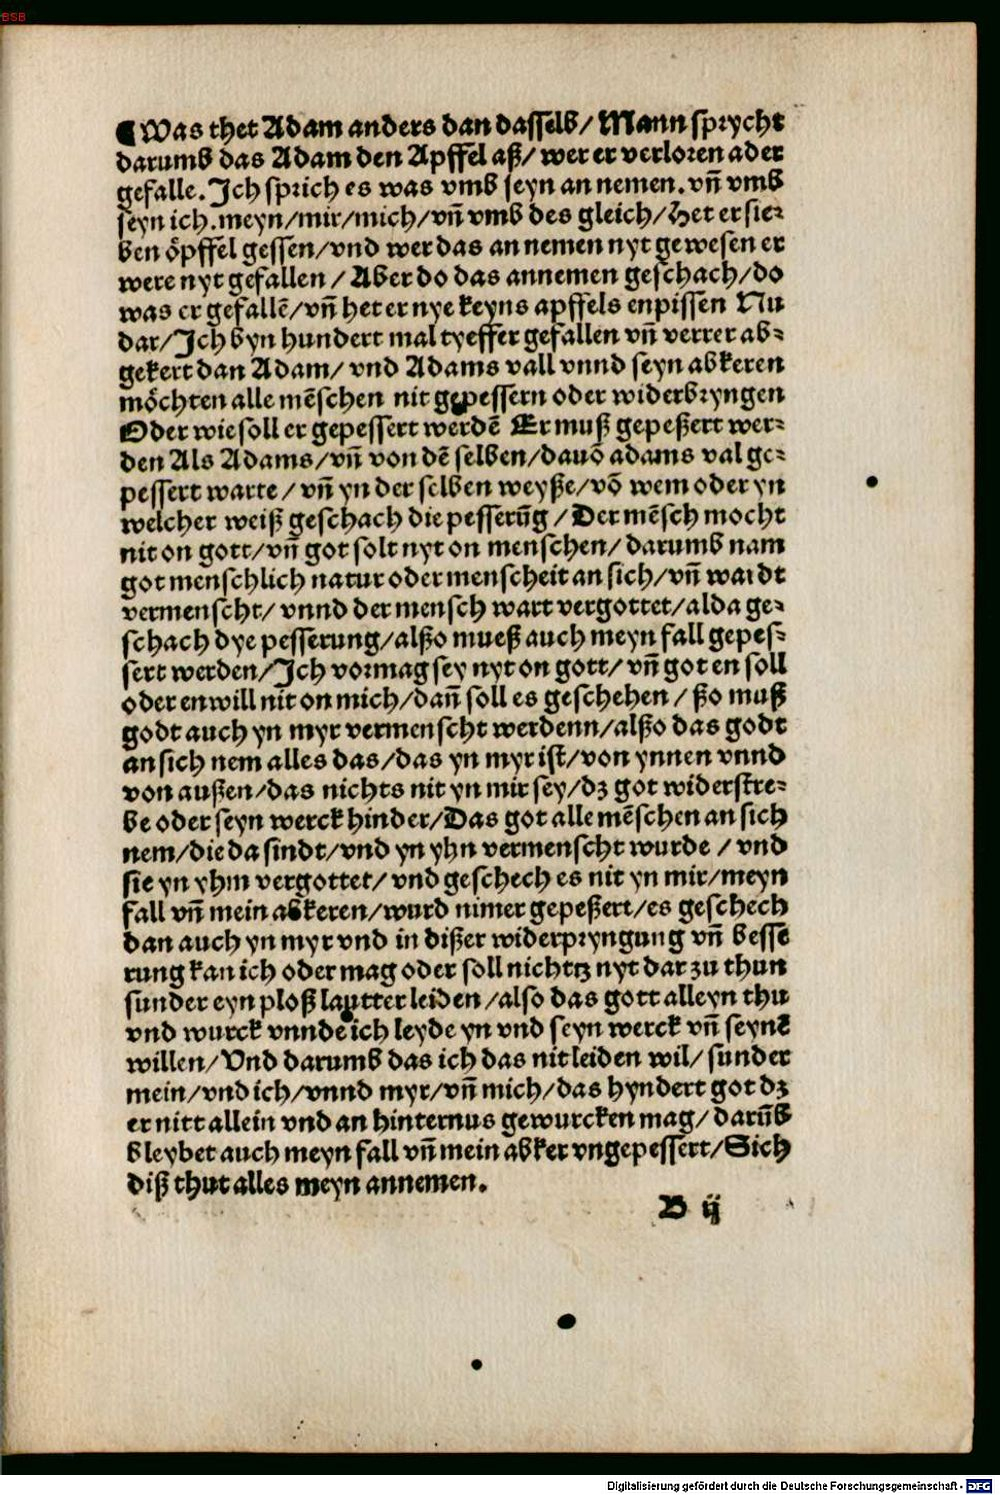 BSB
¶ Was thet Adam anders dan dasselb/ Mann sprycht
darumb das Adam den Apffel aß/ wer er verloren ader
gefalle. Ich sprich es was vmb seyn an nemen. vn̄ vmb
seyn ich. meyn/mir/mich/vn̄ vmb des gleich/Het er sie-
ben öpffel gessen/vnd wer das an nemen nyt gewesen er
were nyt gefallen / Aber do das annemen geschach/do
was er gefallē/vn̄ het er nye keyns apffels enpissen Nu
dar/Ich byn hundert mal tyeffer gefallen vn̄ verrer ab-
gekert dan Adam/ vnd Adams vall vnnd seyn abkeren
möchten alle mēschen nit gepessern oder widerbryngen
Oder wie soll er gepessert werdē Er muß gepeßert wer-
den Als Adams/vn̄ von dē selben/dauō adams val ge-
pessert warte / vn̄ yn der selben weyße/vō wem oder yn
welcher weiß geschach die pesserūg /Der mēsch mocht
nit on gott/vn̄ got solt nyt on menschen/darumb nam
got menschlich natur oder menscheit an sich/vn̄ wardt
vermenscht/ vnnd der mensch wart vergottet/alda ge-
schach dye pesserung/alßo mueß auch meyn fall gepes-
sert werden/Ich vormag sey nyt on gott/vn̄ got en soll
oder enwill nit on mich/dan̄ soll es geschehen / ßo muß
godt auch yn myr vermenscht werdenn/alßo das godt
an sich nem alles das/das yn myr ist/von ynnen vnnd
von außen/das nichts nit yn mir sey/dz got widerstre-
be oder seyn werck hinder/Das got alle mēschen an sich
nem/die da sindt/vnd yn yhn vermenscht wurde / vnd
sie yn yhm vergottet/vnd geschech es nit yn mir/meyn
fall vn̄ mein abkeren/wurd nimer gepeßert/es geschech
dan auch yn myr vnd in dißer widerpryngung vn̄ besse
rung kan ich oder mag oder soll nichtz nyt dar zu thun
sunder eyn ploß lautter leiden/also das gott alleyn thu
vnd wurck vnnde ich leyde yn vnd seyn werck vn̄ seynē
willen/Vnd darumb das ich das nit leiden wil/sunder
mein/vnd ich/vnnd myr/vn̄ mich/das hyndert got dz
er nitt allein vnd an hinternus gewurcken mag/darūb
bleybet auch meyn fall vn̄ mein abker vngepessert/Sich
diß thut alles meyn annemen.
B ij
Digitalisierung gefördert durch die Deutsche Forschungsgemeinschaft - DFG